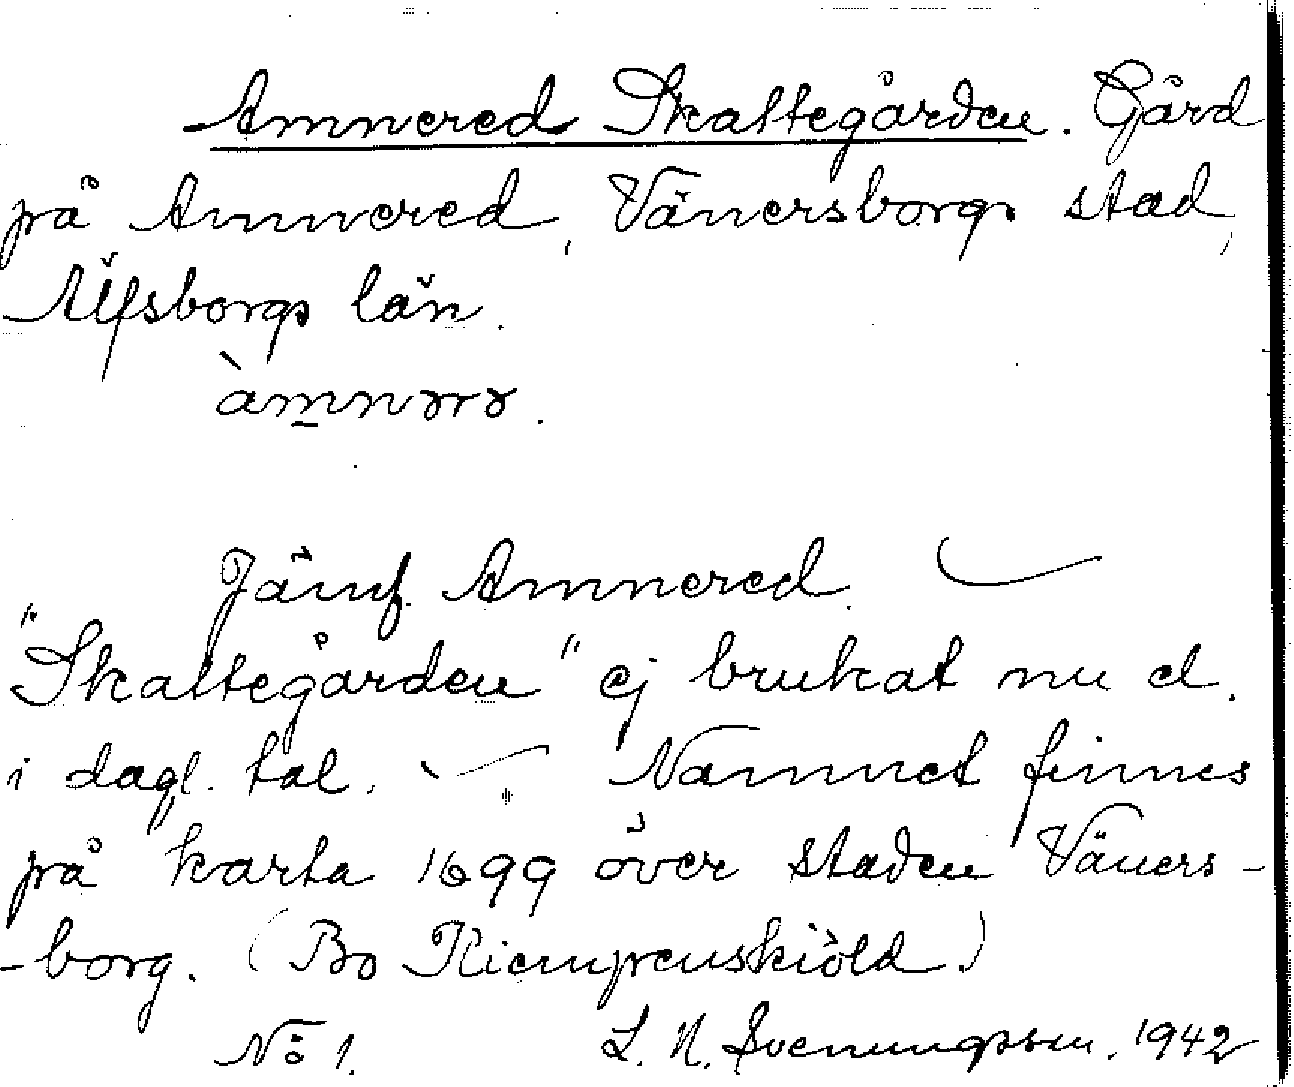 Amnered Skattegården. Gård
på Amnered, Vänersborgs stad,
Älfsborgs län.
Jämf. Amnered.
"Skattegården" ej brukat nu el.
i dagl. tal. Namnet finnes
på karta 1699 över staden Väners-
-borg. (Bo Kiempenskiöld.)
No 1. L. N. Svenungsson. 1942